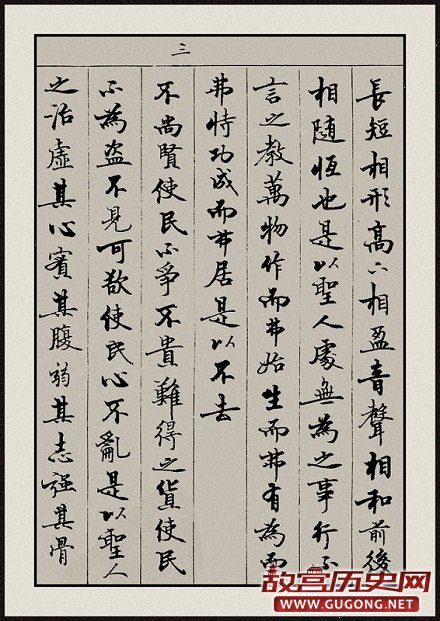 三
長短相形高下相盈音聲相和前後
相隨恆也是以聖人處無為之事行不
言之教萬物作而弗始生而弗有為而
弗恃功成而弗居是以不去
不尚賢使民不爭不貴難得之貨使民
不為盜不見可欲使民心不亂是以聖人
之治虛其心實其腹弱其志強其骨
故宫历史网
WWW.GUGONG.NET